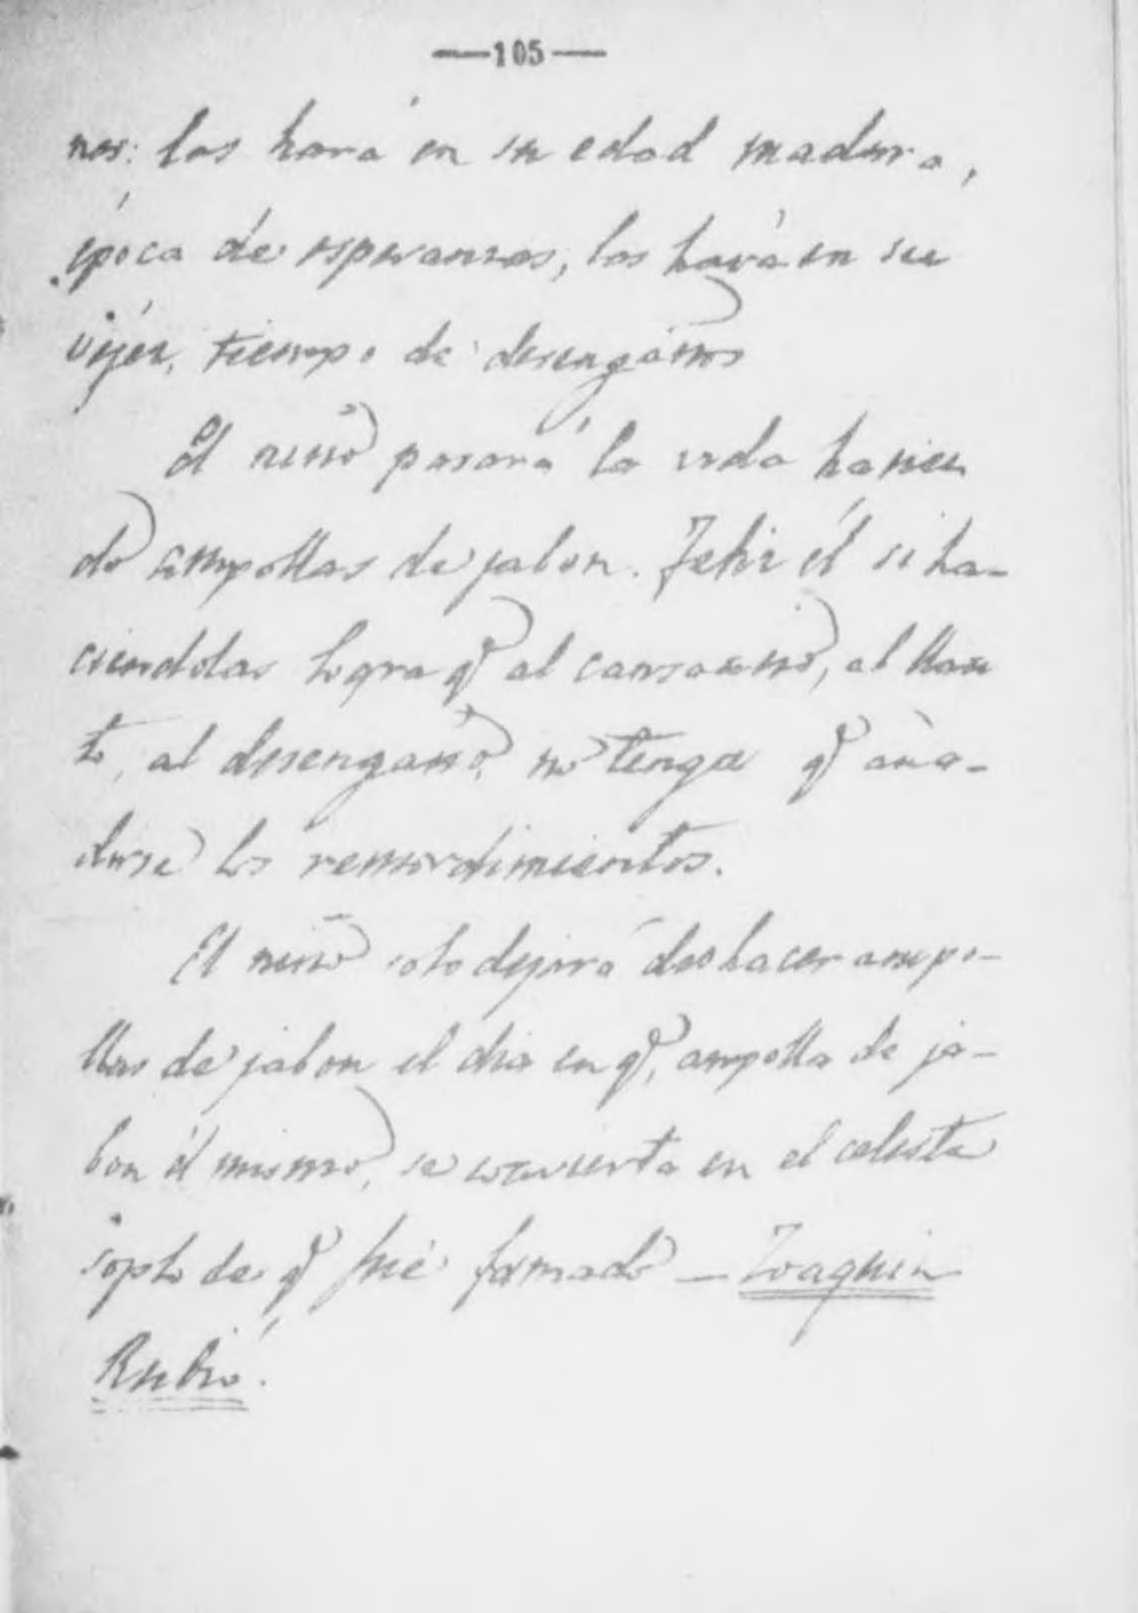 —105—
nes: las hará en su edad madura,
época de esperanzas, las hará en su
vejéz, tiempo de desengaños
El niño pasará la vida hacien
do ampollas de jabon. Feliz él si ha-
ciendolas logra q̃ al cansancio, al llan
to, al desengaño no tenga q̃ aña-
dirse los remordimientos.
El niño solo dejará deshacer ampo-
llas de jabon el dia en q̃, ampolla de ja-
bon él mismo, se convierta en el celeste
soplo de q̃ fué formado — Joaquin
Rubió.